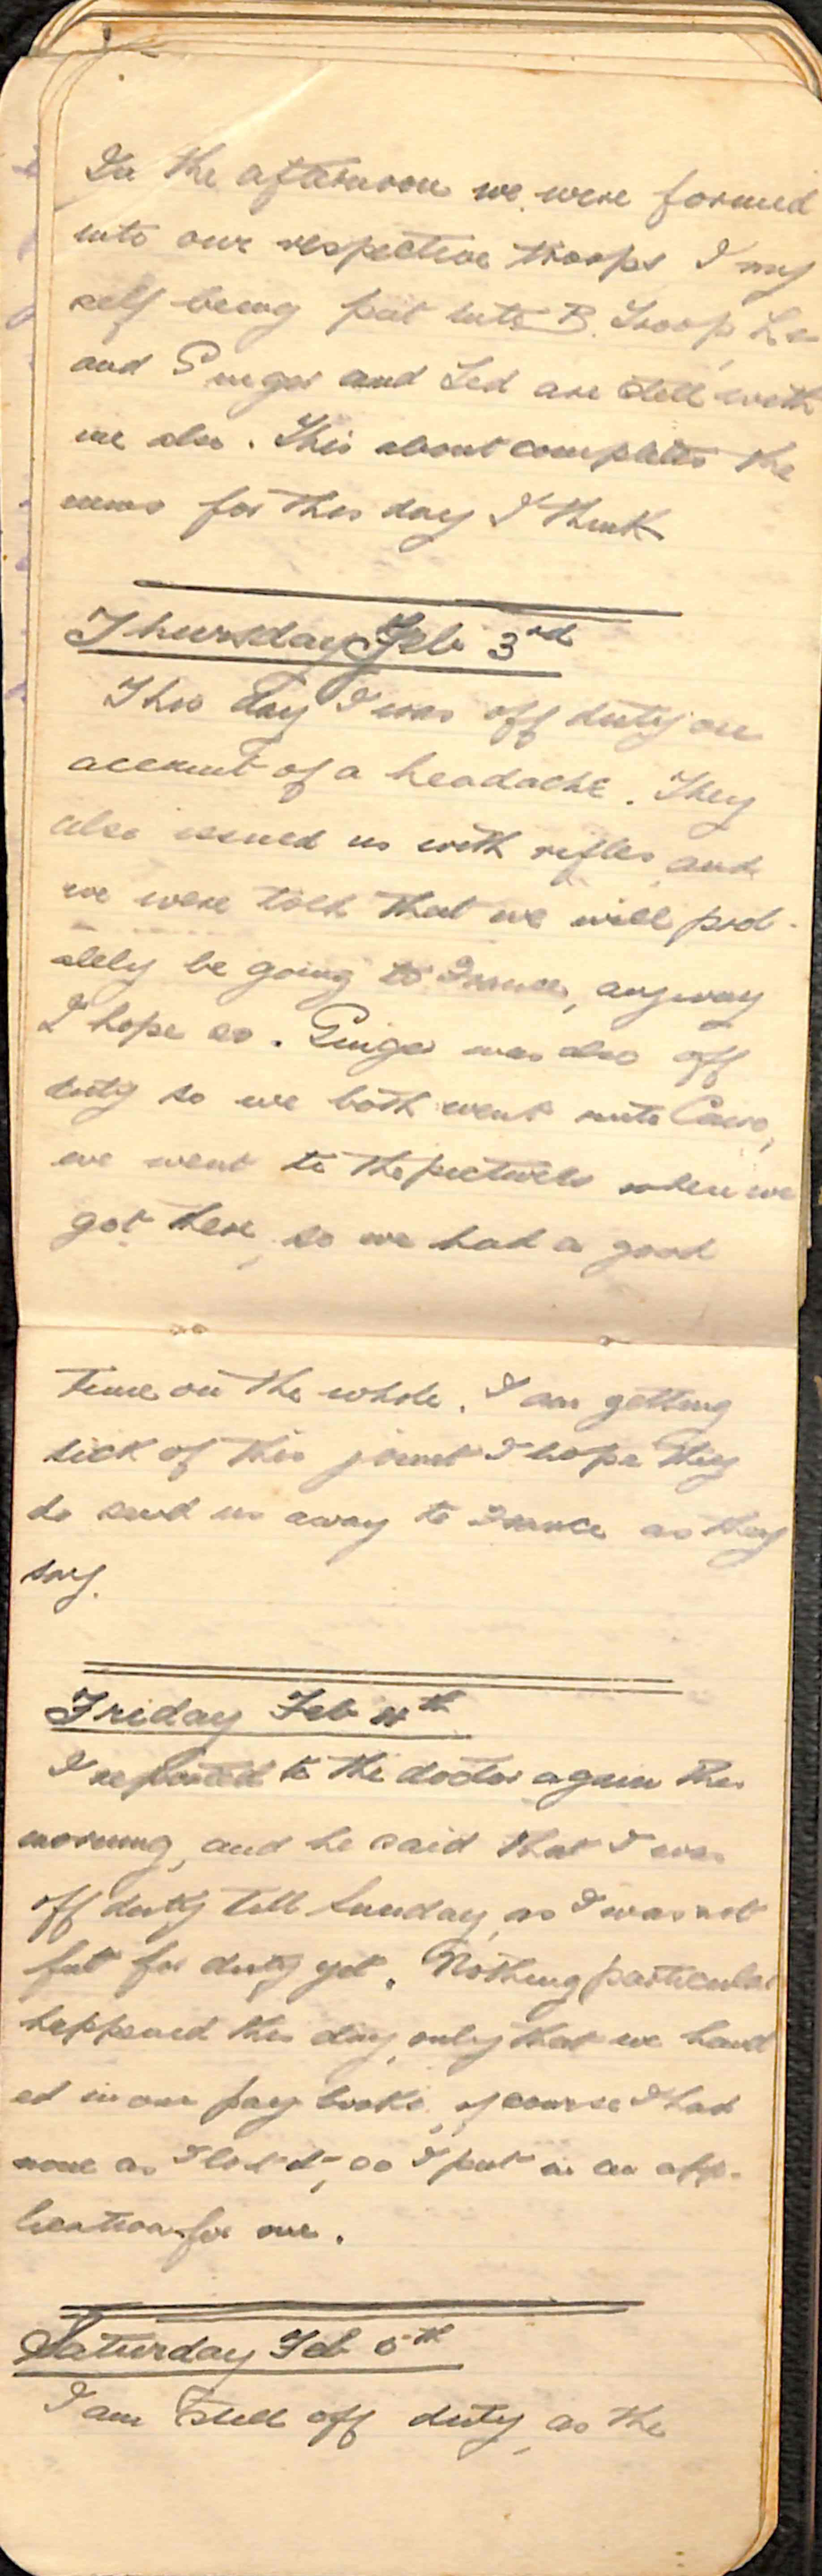 In the afternoon we were formed
into our respective troops I my
self being put into B. Troop,
and Ginger and Ted are still with
me also. This about completes the
news for this day I think
Thursday Feb 3rd
This day I was off duty on
account of a headache. They
also issued us with rifles, and
we were told that we will prob-
ably be going to France, anyway
I hope so. Ginger was also off
duty so we both went into Cairo,
we went to the pictures when we
got there, so we had a good
time on the whole. I am getting
sick of this joint I hope they
do send us away to France as they
say.
Friday Feb 4th
I reported to the doctor again this
morning, and he said that I was
off duty till Sunday, as I was not
fit for duty yet. Nothing particular
happened this day, only that we hand
ed in our pay books, of course I had
none as I lost it, so I put in an app-
lication for one.
Saturday Feb 5th
I am still off duty, as the